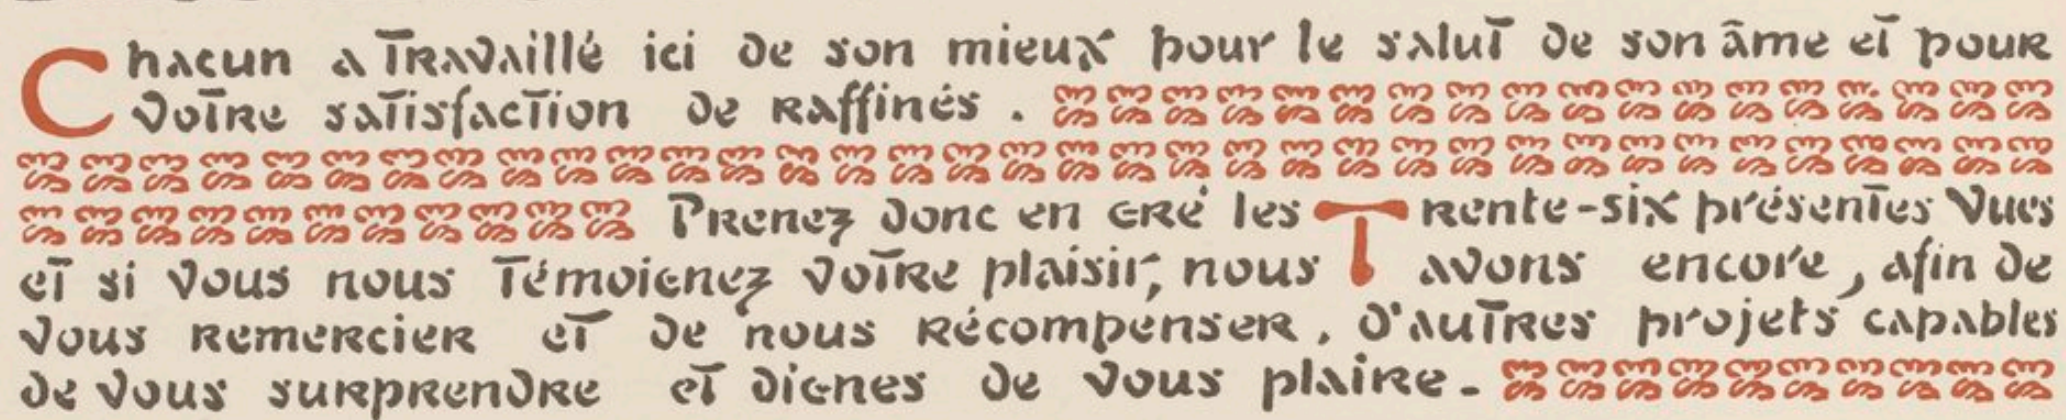 Chacun a travaillé ici de son mieux pour le salut de son âme et pour
votre satisfaction de raffinés.
Prenez donc en gré les Trente-six présentes vues
et si vous nous témoignez votre plaisir, nous avons encore, afin de
vous remercier et de nous récompenser, d'autres projets capables
de vous surprendre et dignes de vous plaire.